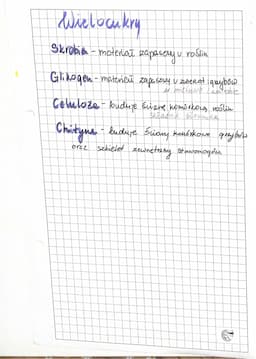 Wielocukry
Skrobia - materiał zapasowy u roślin
Glikogen - materiał zapasowy u zwierząt grzybów
w
Celuloza - buduje ścianę komórkową roślin
składnik
Chityna - buduje ściany komórkowe grzybów
oraz szkielet zewnętrzny stawonogów